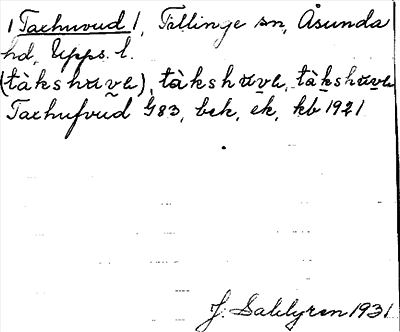 | Taxhuvud |, Tillinge sn, Åsunda
hd, Upps. l.
(tàkshʉvɐ), tàkshʉvɐ, tàkshʉvɐ
Taxhufvud G83, bek, ek, kb 1921
J. Sahlgren 1931